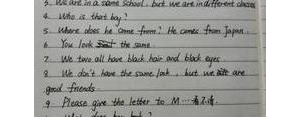 3. We are in a same school, but we are in different classes
4. Who is that boy?
5. Where does he come from? He comes from Japan.
6. You look the same.
7. We two all have black hair and black eyes
8. We don't have the same look, but we are
good friends.
9. Please give the letter to M